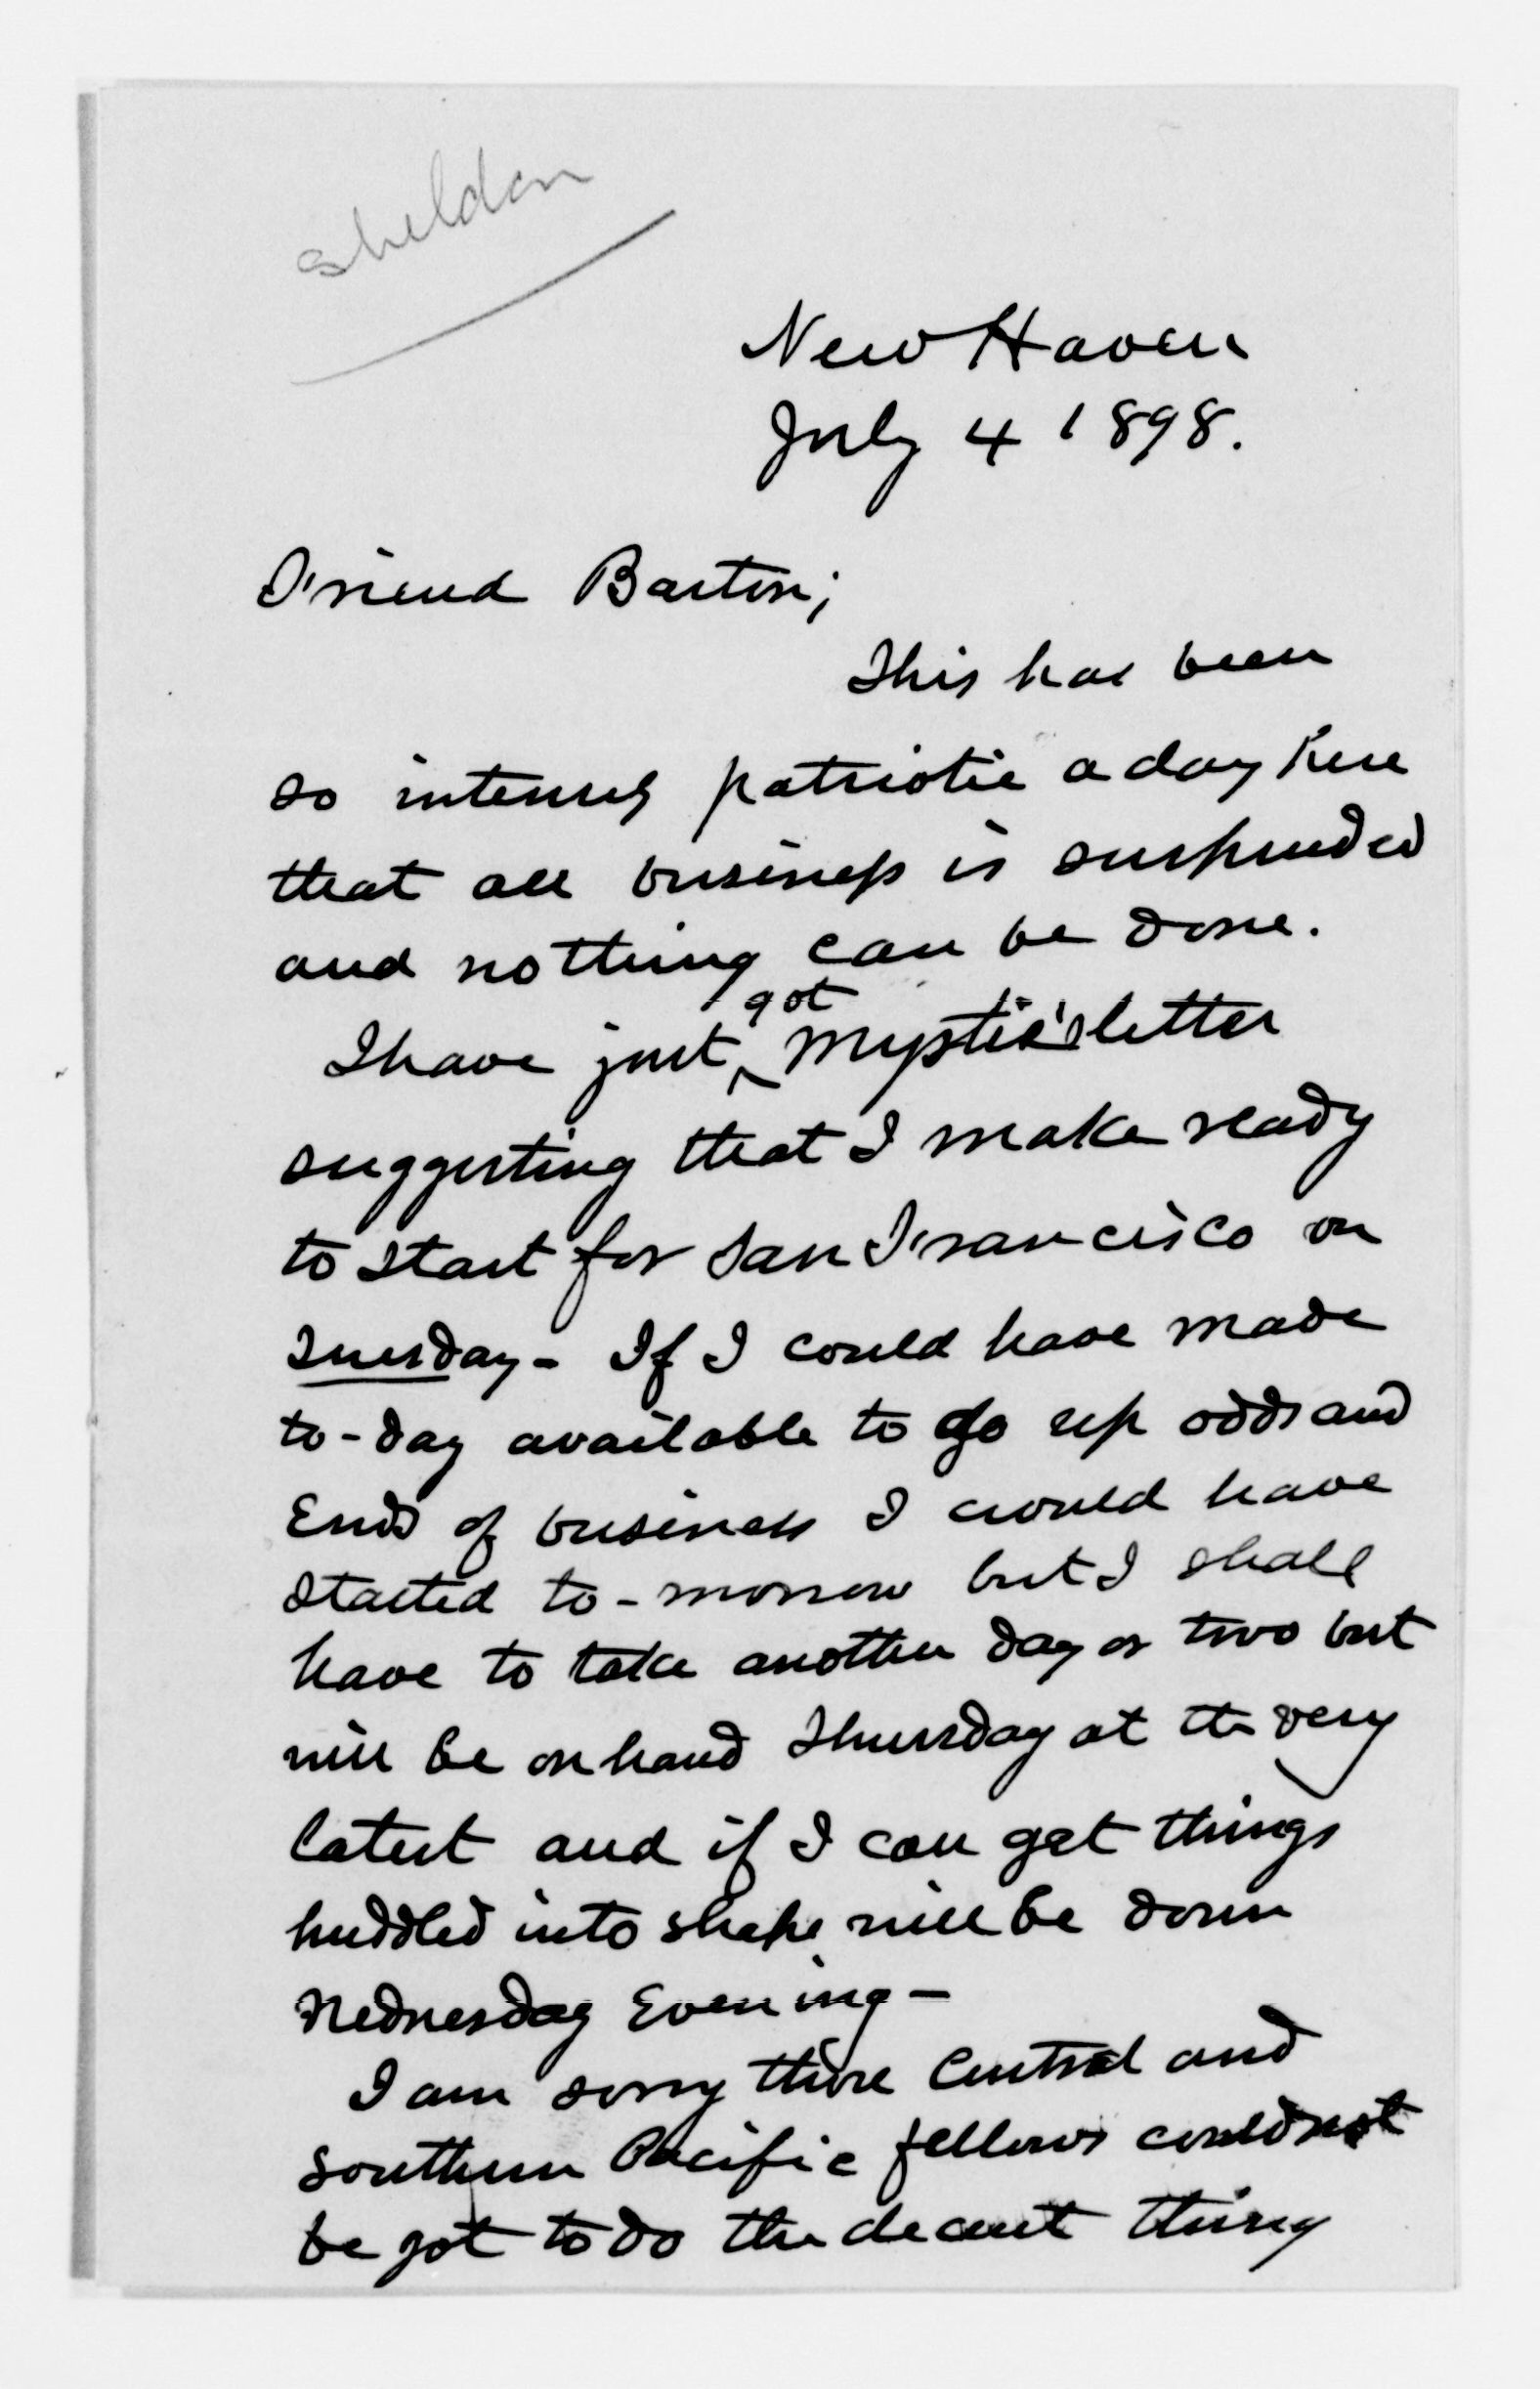 Sheldon
New Haven
July 4 1898.
Friend Barton;
This has been
so intensely patriotic a day here
that all business is suspended
and nothing can be done.
I have just got Mystic's letter
suggesting that I make ready
to start for San Francisco on
Tuesday - If I could have made
to-day available to do up odds and
Ends of business I would have
started to-morrow but I shall
have to take another day or two but
will be on hand Thursday at the very
latest and if I can get things
huddled into shape will be down
Wednesday Evening -
I am sorry those Central and
Southern Pacific fellows could not
be got to do the decent thing